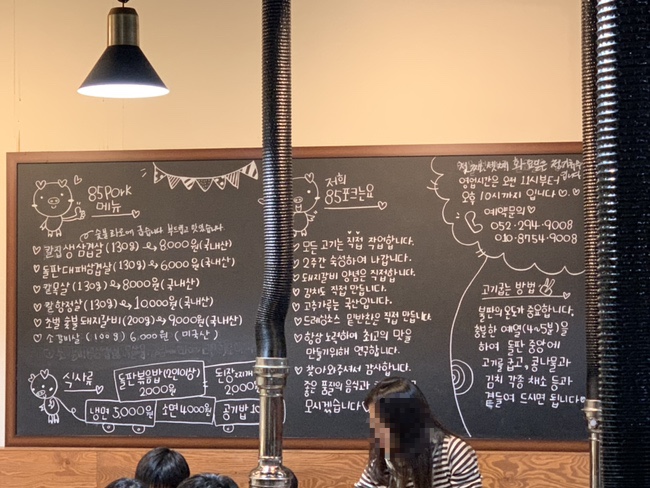 85Pork
메뉴
칼집생삼겹살 (130g) 8000원 (국내산)
돌판대패삼겹살 (130g) 6.000원 (국내산)
칼목살 (130g) 8000원 (국내산)
칼항정살 (130g) 10,000원 (국내산)
초벌 숯불돼지갈비 (200g) 9000원 (국내산)
소갈비살 (100g) 6.000원 (미국산)
식사류
돌판볶음밥 (2인이상)
2000원
된장찌개
2000원
냉면 5,000원
소면 4000원
공기밥
저희
85포크는요
모든 고기는 직접 작업합니다.
2주간 숙성하여 나갑니다.
돼지갈비 양념은 직접합니다.
김치도 직접 만듭니다.
고춧가루는 국산입니다.
드레싱소스 밑반찬은 직접 만듭니다.
항상 노력하여 최고의 맛을
만들기위해 연구합니다.
찾아와주셔서 감사합니다.
좋은 품질의 음식과
모시겠습니다
화요일은
영업시간은 오전 11시부터
오후 10시까지 입니다
예약문의
052-294-9008
010-8754-9008
고기굽는 방법
불판의 온도가 중요합니다.
충분한 예열(4~5분)을
하여 돌판 중앙에
고기를 굽고, 콩나물과
김치 각종 채소 등과
곁들여 드시면 됩니다